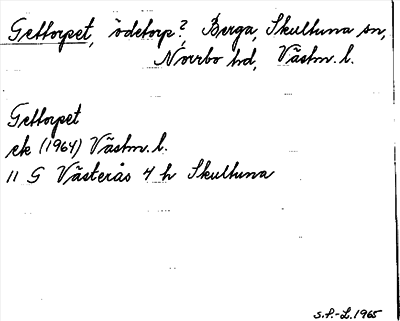 Gettorpet, ödetorp?, Berga, Skultuna sn,
Norrbo hd, Västm. l.
Gettorpet
ek (1964) Västm. l.
11 G Västerås 4 h Skultuna
S.P.-L. 1965